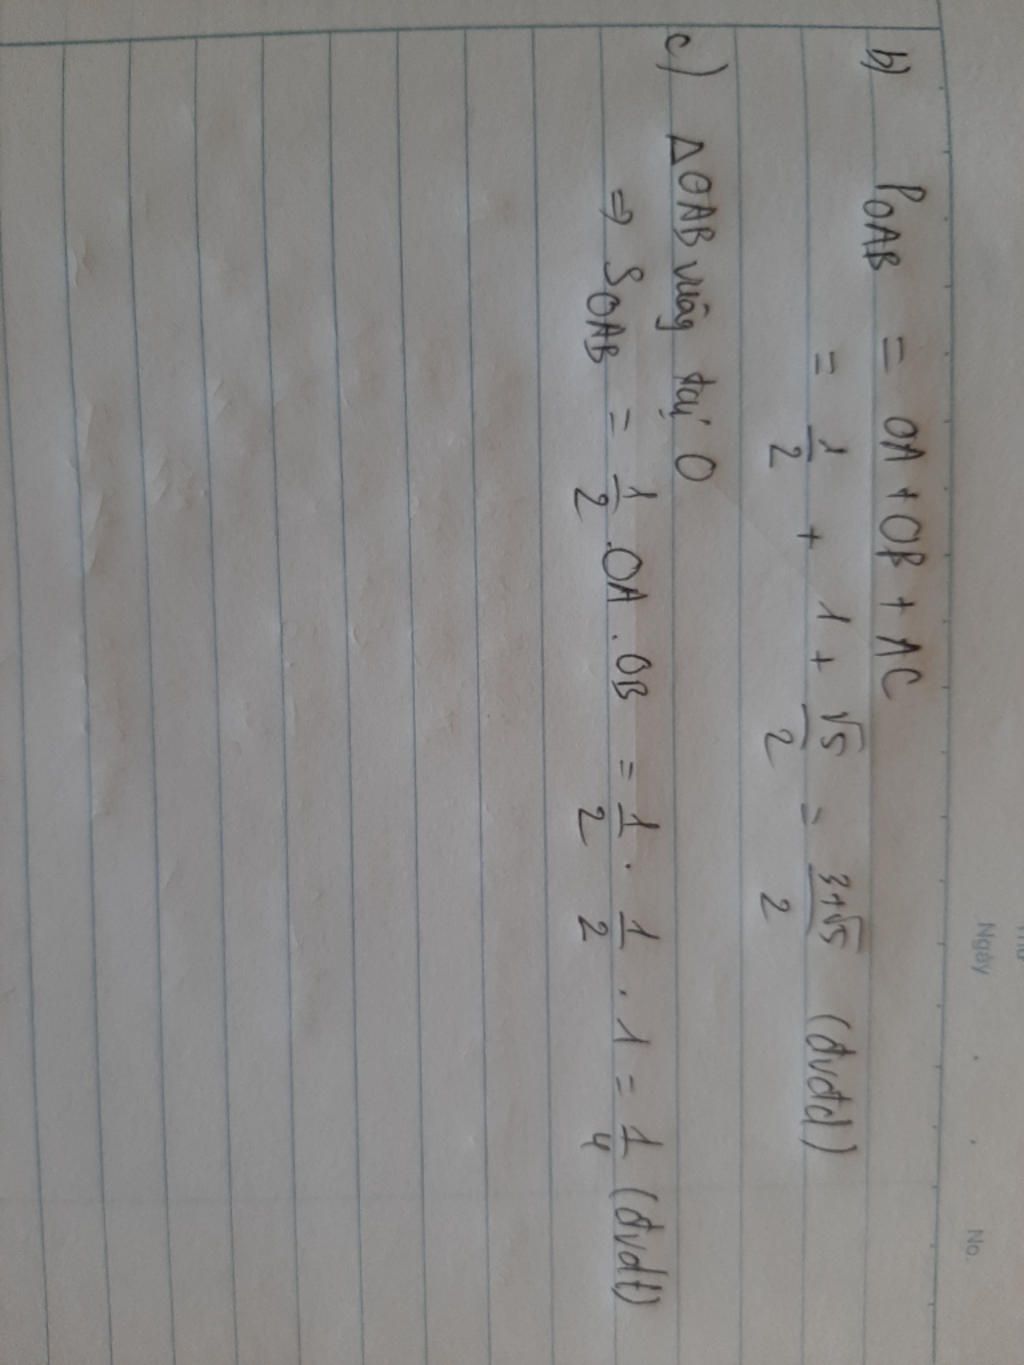 Ngày No.
b) P_OAB = OA + OB + AC
= 1/2 + 1 + √5/2 = (3+√5)/2 (đvđd)
c) ΔOAB vuông tại O
⇒ S_OAB = 1/2 . OA . OB = 1/2 . 1/2 . 1 = 1/4 (đvdt)